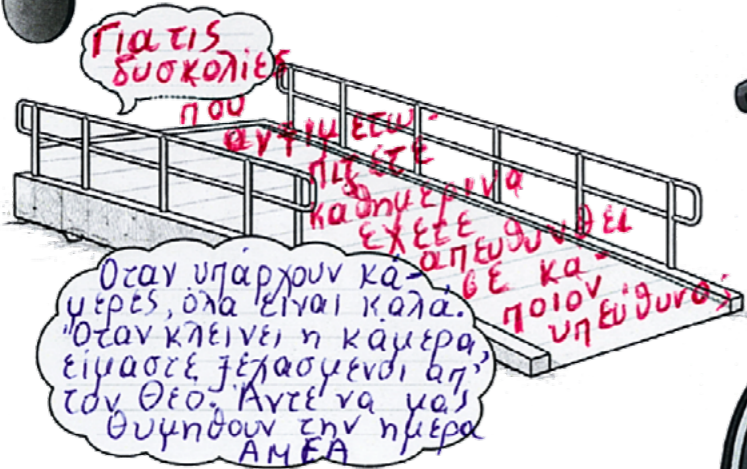 Για τις
δυσκολίες
που
αντιμετω-
πιζετε
καθημερινα
εχετε
απευθυνθει
σε κα-
ποιον
υπεύθυνο;
Οταν υπάρχουν κά-
μερες, όλα είναι καλά.
Όταν κλεινει η κάμερα,
είμαστε ξεχασμενοι απ'
τον Θεο. Άντε να μας
θυμηθουν την ημερα
ΑΜΕΑ